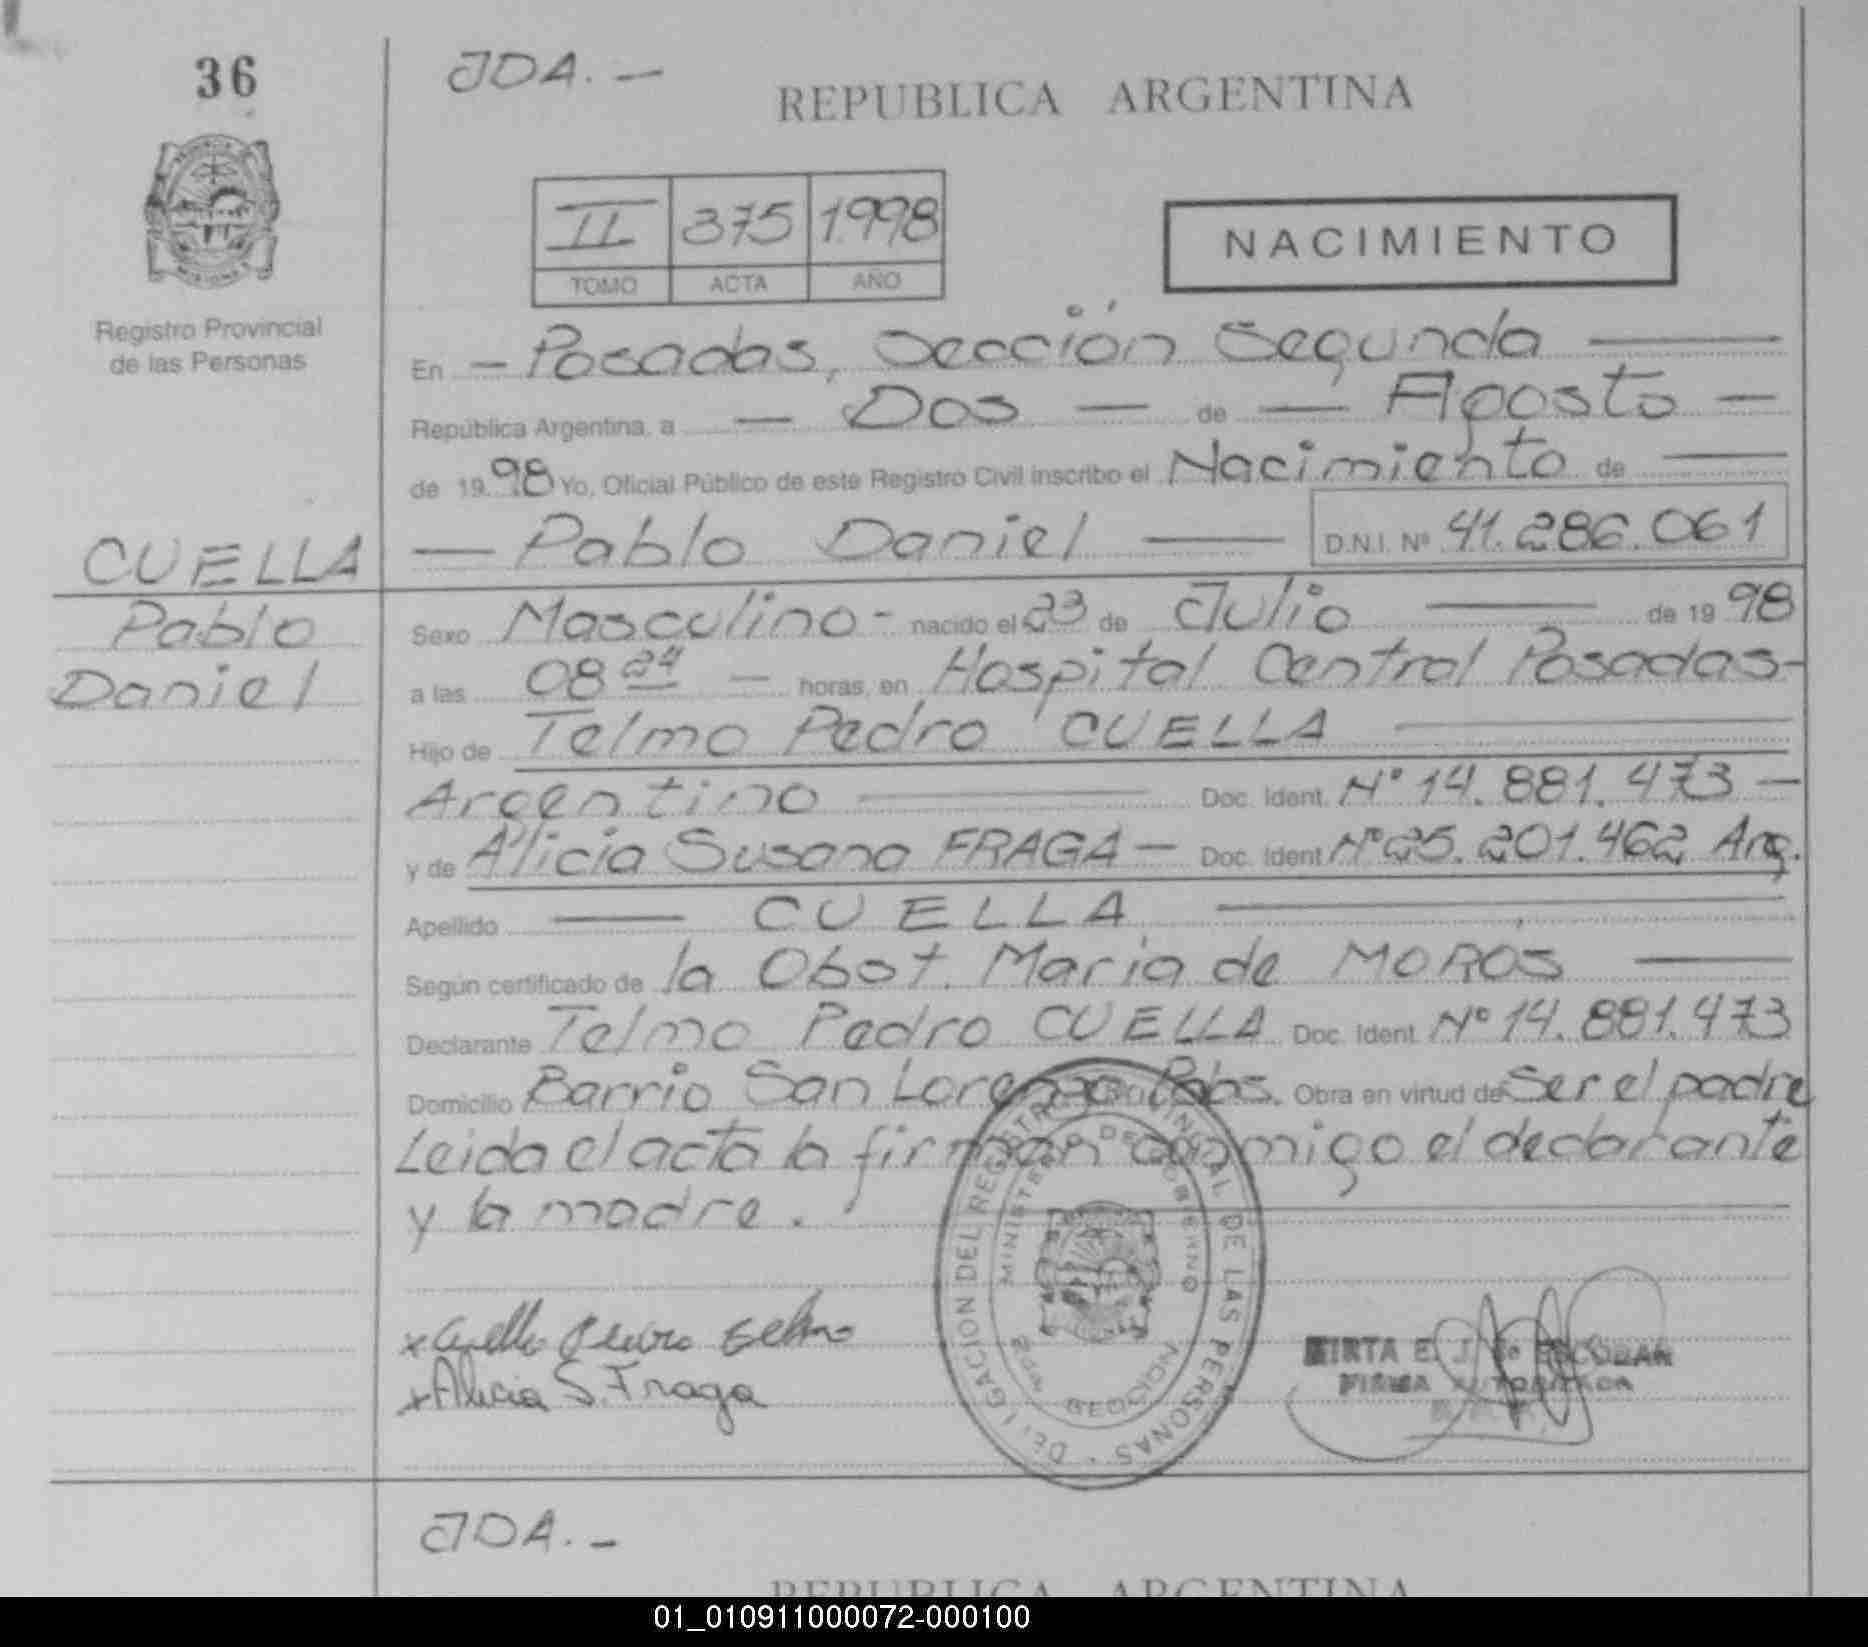 36
JDA.—
REPUBLICA ARGENTINA
II 375 1.998
TOMO ACTA AÑO
NACIMIENTO
Registro Provincial
de las Personas
En — Posadas, Sección Segunda —
República Argentina, a — Dos — de — Agosto —
de 19 98 Yo, Oficial Público de este Registro Civil inscribo el Nacimiento de —
CUELLA — Pablo Daniel — D.N.I. Nº 41.286.061
Pablo
Daniel
Sexo Masculino - nacido el 23 de Julio — de 19 98
a las 08 24 — horas, en Hospital Central Posadas-
Hijo de Telmo Pedro CUELLA —
Argentino — Doc. Ident. Nº 14.881.473 —
y de Alicia Susana FRAGA — Doc. Ident Nº 25.201.462 Arg.
Apellido — CUELLA —
Según certificado de la Obst. María de MOROS —
Declarante Telmo Pedro CUELLA Doc. Ident. Nº 14.881.473
Domicilio Barrio San Lorenzo Pdas. Obra en virtud de Ser el padre
Leida el acta la firman conmigo el declarante
y la madre. —
x Cuella Pedro Telmo
x Alicia S. Fraga
DELEGACION DEL REGISTRO PROVINCIAL DE LAS PERSONAS
MINISTERIO DE GOBIERNO
SECCION
MIRTA E. J. de ESCOBAR
FIRMA AUTORIZADA
JDA.-
REPUBLICA ARGENTINA
01_010911000072-000100